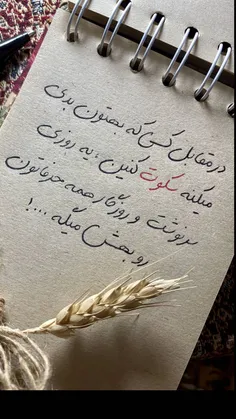 در مقابل کسی که بهتون بدی
میکنه سکوت کنین، یه روزی
سرنوشت و روزگار همه حرفاتون
رو بهش میگه ....!